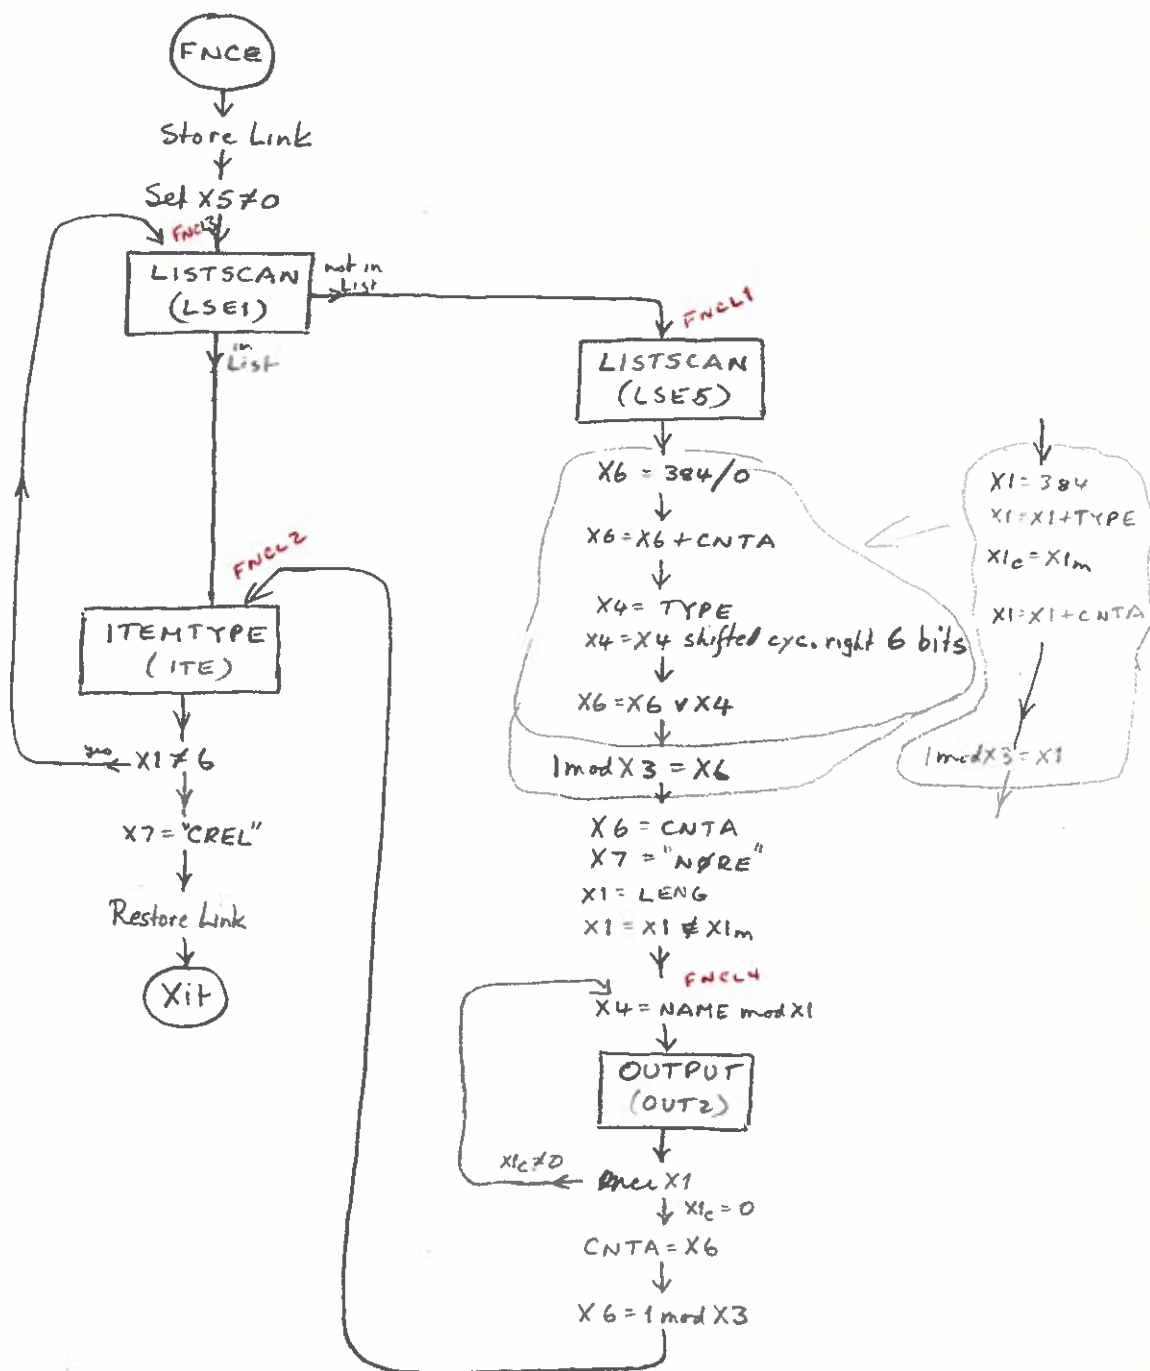 FNCE
Store Link
Set X5≠0
FNCL3
LISTSCAN
(LSE1)
not in
List
in
List
FNCL2
ITEMTYPE
(ITE)
yes
X1≠6
X7="CREL"
Restore Link
Xit
FNCL1
LISTSCAN
(LSE5)
X6 = 384/0
X6=X6+CNTA
X4= TYPE
X4=X4 shifted cyc. right 6 bits
X6=X6 v X4
1modX3=X6
X6=CNTA
X7="NØRE"
X1=LENG
X1=X1 ≢ X1m
FNCL4
X4=NAME modX1
OUTPUT
(OUT2)
X1c≠0
X1
X1c=0
CNTA=X6
X6=1modX3
X1=384
X1=X1+TYPE
X1c=X1m
X1=X1+CNTA
1modX3=X1